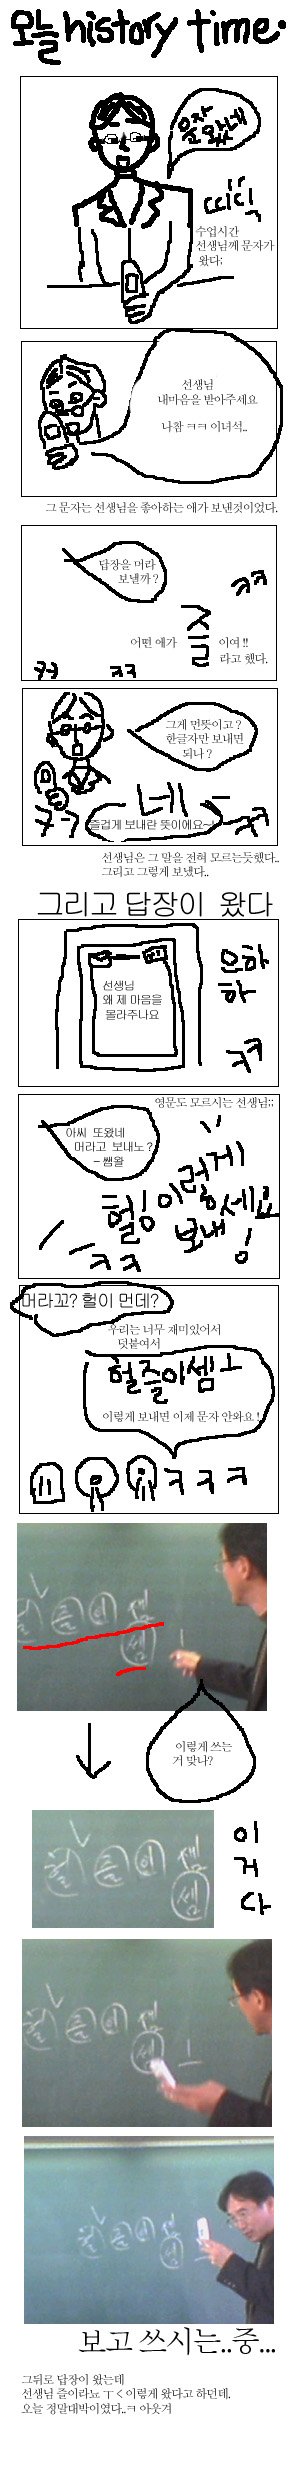 오늘 history time.
문자
왔네
띠딕
수업시간
선생님께 문자가
왔다;
선생님
내마음을 받아주세요
나참 ㅋㅋ 이녀석..
그 문자는 선생님을 좋아하는 애가 보낸것이었다.
답장을 머라
보낼까?
ㅋㅋ
어떤 애가 즐 이여!!
라고 했다.
ㅋㅋ ㅋㅋ
그게 먼뜻이고?
한글자만 보내면
되나?
네~
즐겁게 보내란 뜻이에요~!
ㅋㅋ
ㅋㅋ
선생님은 그 말을 전혀 모르는듯했다..
그리고 그렇게 보냈다..
그리고 답장이 왔다
선생님
왜 제 마음을
몰라주나요
으하
하
ㅋㅋ
영문도 모르시는 선생님;;
아씨 또왔네
머라고 보내노?
- 쌤왈
헐!이렇게
보내세요!
ㅋㅋ
머라꼬? 헐이 먼데?
우리는 너무 재미있어서
덧붙여서
헐즐아셈ㅗ
이렇게 보내면 이제 문자 안와요!
ㅋㅋㅋ
헐 즐 아 샘
셈 ㅗ
이렇게 쓰는
거 맞나?
헐 즐 아 샘
셈
이
거
다
헐 즐 아 샘
셈 ㅗ
헐 즐 아 샘
셈 ㅗ
보고 쓰시는..중...
그뒤로 답장이 왔는데
선생님 즐이라뇨 ㅜㅜ 이렇게 왔다고 하던데.
오늘 정말대박이였다..ㅋ 아웃겨